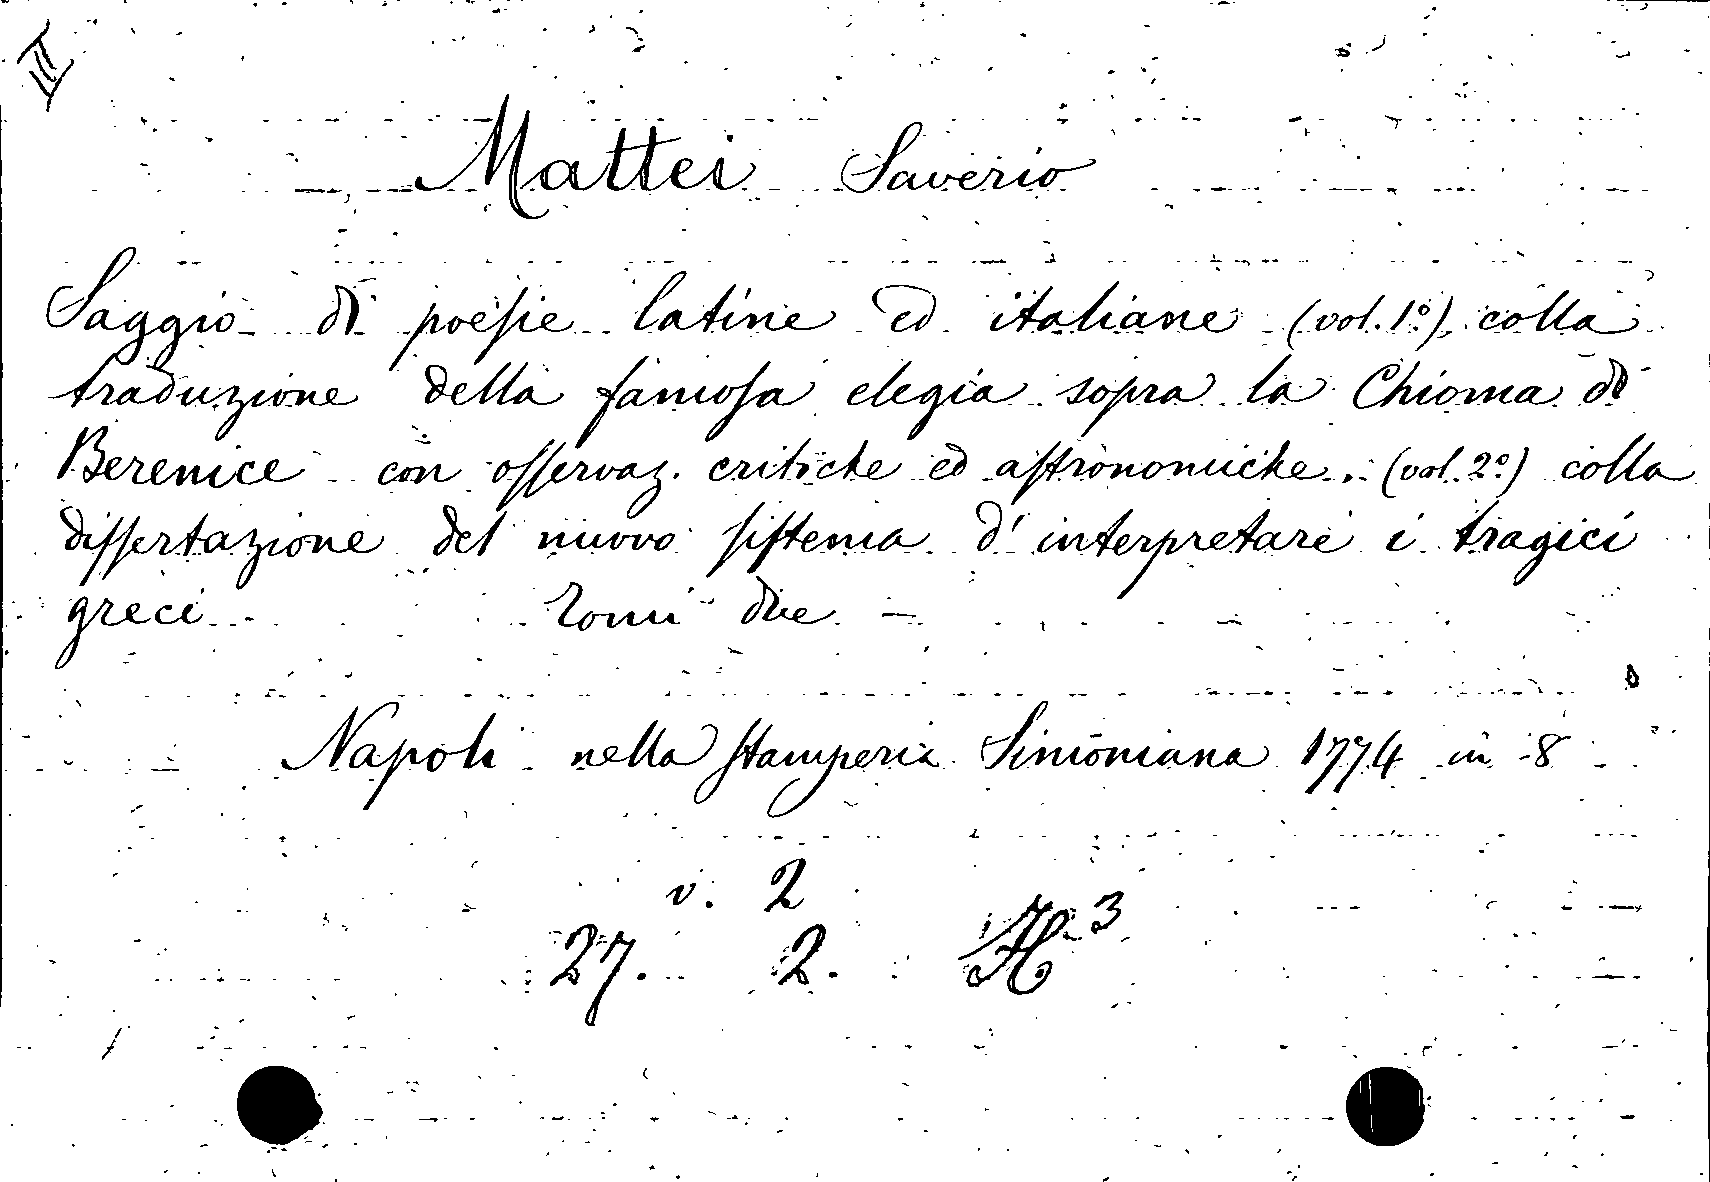 III
Mattei Saverio
Saggio di poesie latine ed italiane (vol. 1º) colla
traduzione della famosa elegia sopra la Chioma di
Berenice con osservaz. critiche ed astronomiche. (vol. 2º) colla
dissertazione del nuovo sistema d'interpretare i tragici
greci Tomi due –
Napoli nella stamperia Simoniana 1774 in 8
v. 2
27. 2. H 3